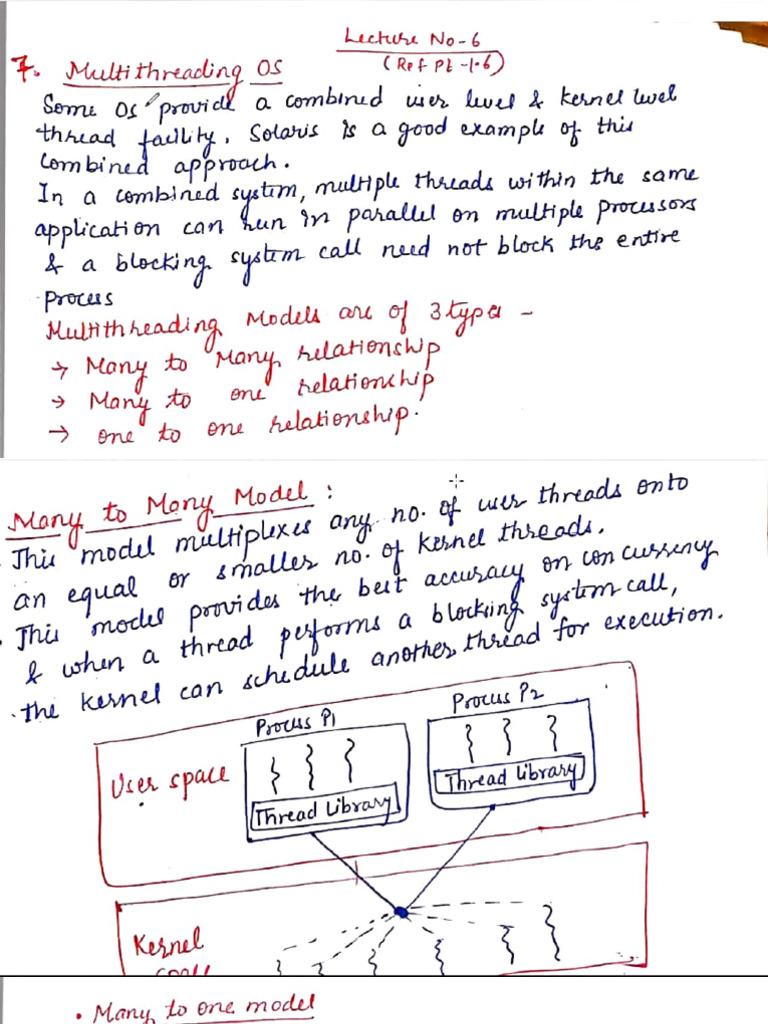 Lecture No-6
(Ref Pt -1.6)
7. Multithreading OS
Some OS provide a combined user level & kernel level
thread facility. Solaris is a good example of this
combined approach.
In a combined system, multiple threads within the same
application can run in parallel on multiple processors
& a blocking system call need not block the entire
process
Multithreading Models are of 3 types -
→ Many to Many relationship
→ Many to one relationship
→ one to one relationship.
Many to Many Model :
. This model multiplexes any no. of user threads onto
an equal or smaller no. of kernel threads.
. This model provides the best accuracy on concurrency
& when a thread performs a blocking system call,
. the kernel can schedule another thread for execution.
Process P1
Process P2
User space
Thread Library
Thread Library
Kernel
space
• Many to one model